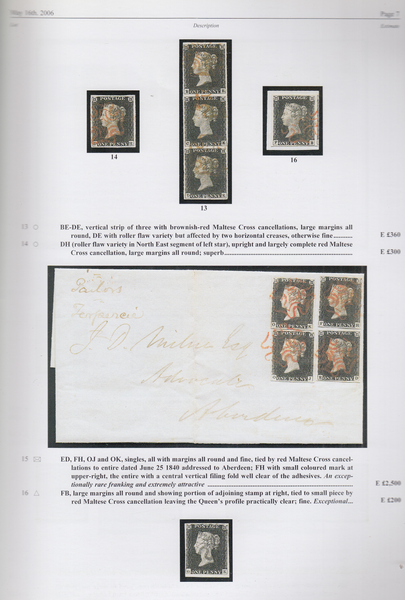 May 16th, 2006 Page 7
Lot Description Estimate
POSTAGE
ONE PENNY
14
13
16
13 BE-DE, vertical strip of three with brownish-red Maltese Cross cancellations, large margins all
round, DE with roller flaw variety but affected by two horizontal creases, otherwise fine........... E £360
14 DH (roller flaw variety in North East segment of left star), upright and largely complete red Maltese
Cross cancellation, large margins all round; superb........... E £300
J. D. Milne Esqr
Advocate
Aberdeen
15 ED, FH, OJ and OK, singles, all with margins all round and fine, tied by red Maltese Cross cancel-
lations to entire dated June 25 1840 addressed to Aberdeen; FH with small coloured mark at
upper-right, the entire with a central vertical filing fold well clear of the adhesives. An excep-
tionally rare franking and extremely attractive ........... E £2,500
16 FB, large margins all round and showing portion of adjoining stamp at right, tied to small piece by
red Maltese Cross cancellation leaving the Queen's profile practically clear; fine. Exceptional... E £200
POSTAGE
ONE PENNY